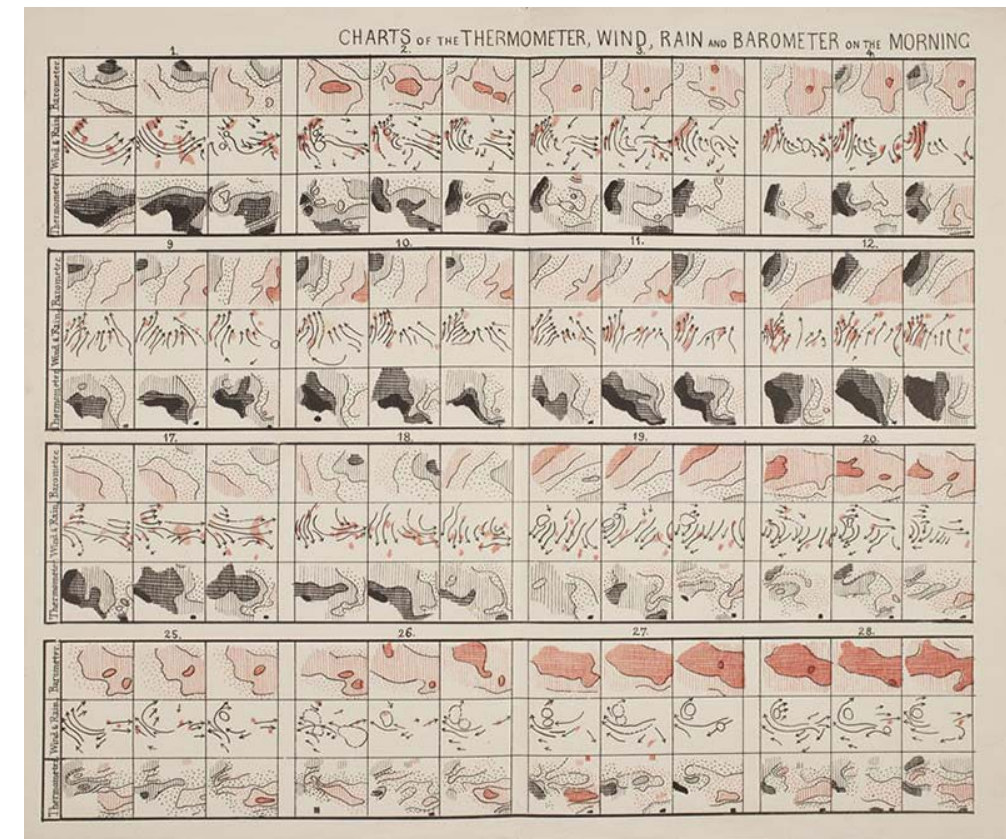 CHARTS OF THE THERMOMETER, WIND, RAIN AND BAROMETER ON THE MORNING
1. 2. 3. 4.
Barometer
Wind & Rain
Thermometer
9 10. 11. 12.
Barometer
Wind & Rain
Thermometer
17. 18. 19. 20.
Barometer
Wind & Rain
Thermometer
25. 26. 27. 28.
Barometer
Wind & Rain.
Thermometer